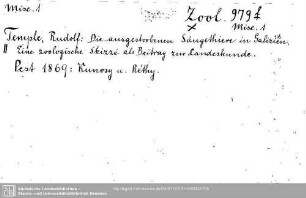 Misc. 1
Zool. 979 f
Misc. 1
Temple, Rudolf: Die ausgestorbenen Säugethiere in Galizien.
Eine zoologische Skizze als Beitrag zur Landeskunde.
Pest 1869: Kunosy u. Réthy.
Sächsische Landesbibliothek -
Staats- und Universitätsbibliothek Dresden